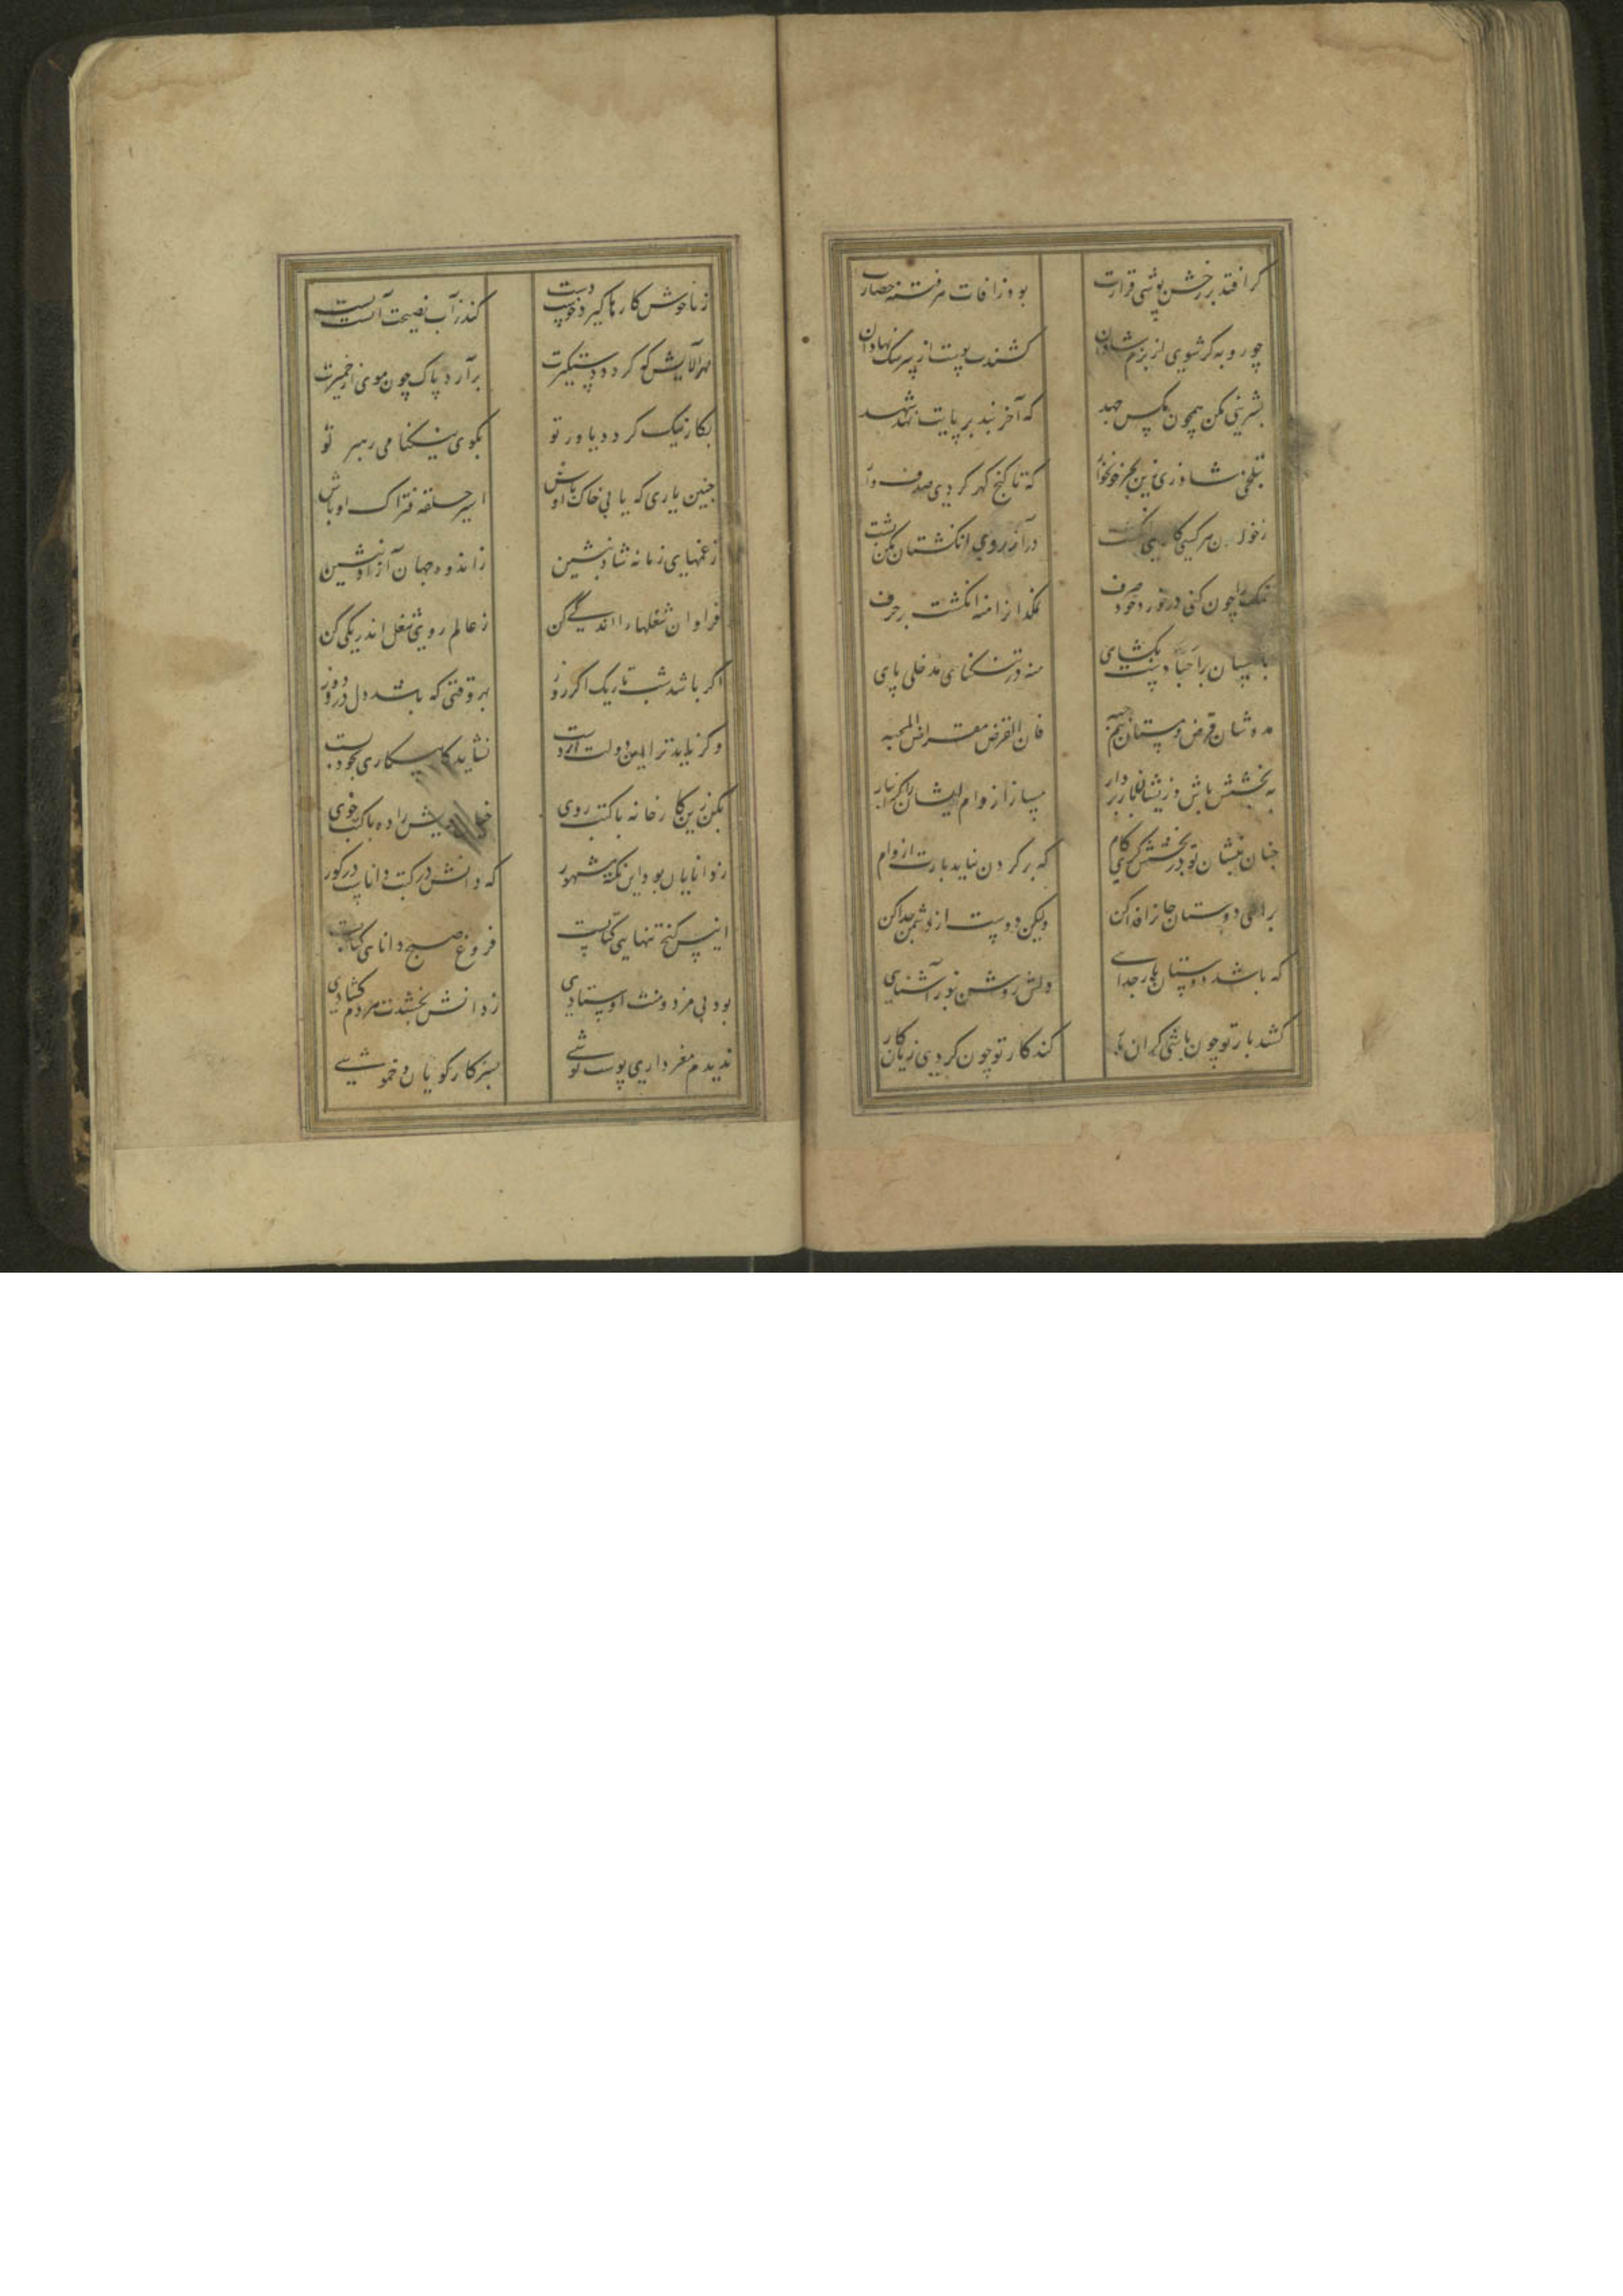 گر افتد بر خشن پوشی قرارت بود ز آفات هر فتنه حصارت
چو روبه گر شوی از بزم شادان کشندت پوست از پر سگ نهادان
بشیرینی مکن همچون مگس جهد که آخر بند بر پایت نهد شهد
بتلخی شاد زی زین بحر خونخوار که تا گنج گهر گردی صدف وار
ز خوان هر کسی کالایی انگشت در آزروی انگشتان مکن مشت
نمک را چون کنی در خورد خود صرف نمکدان را منه انگشت بر حرف
با حسان را بکشای منه در تنگنای مدخلی پای
مده شان قرض و مستان نیم حبه فان القرض مقراض المحبه
به بخشش باش وز ایشان بار بردار مساز از وام ایشان را گرانبار
چنان بنشان تو در بخشش کام که بر گردن نیاید بارت از وام
برای دوستان جان را فدا کن ولیکن دوست از دشمن جدا کن
که باشد دوستان یار خدایی دلش روشن ز نور آشنایی
کشد بار تو چون باشی گران بار کند کار تو چون گردی ز بی کار
ز ناخوش کارها گیرد دو دست کند ز آب نصیحت آتشت پست
بهر آلایشی کو گردد دستگیرت برآرد پاک چون موی از خمیرت
بکار نیک گردد یاور تو بکوی نیکنامی رهبر تو
چنین یاری که یابی خاک او باش اسیر حلقه فتراک او باش
ز غمهای زمانه شاد بنشین ز اندوه جهان آزاد بنشین
فراوان شغلها را اندکی کن ز عالم روی شغل اندر یکی کن
اگر باشد شب تاریک اگر روز بهر وقتی که باشد دل درو دوز
وگر ناید ترا این دولت از دست نشاید که بیکاری بخود بست
بکن زین کارخانه با کتب روی خیال خویش را ده با کتب خوی
ز دانایان بود این نکته مشهور که دانش در کتب دانا در گور
انیس کنج تنهایی کتابست فروغ صبح دانایی کتابست
بود بی مزد و منت اوستادی ز دانش بخشدت هر دم گشادی
ندیدم مغز داری پوست پوشی بسر کار گویان و خموشی